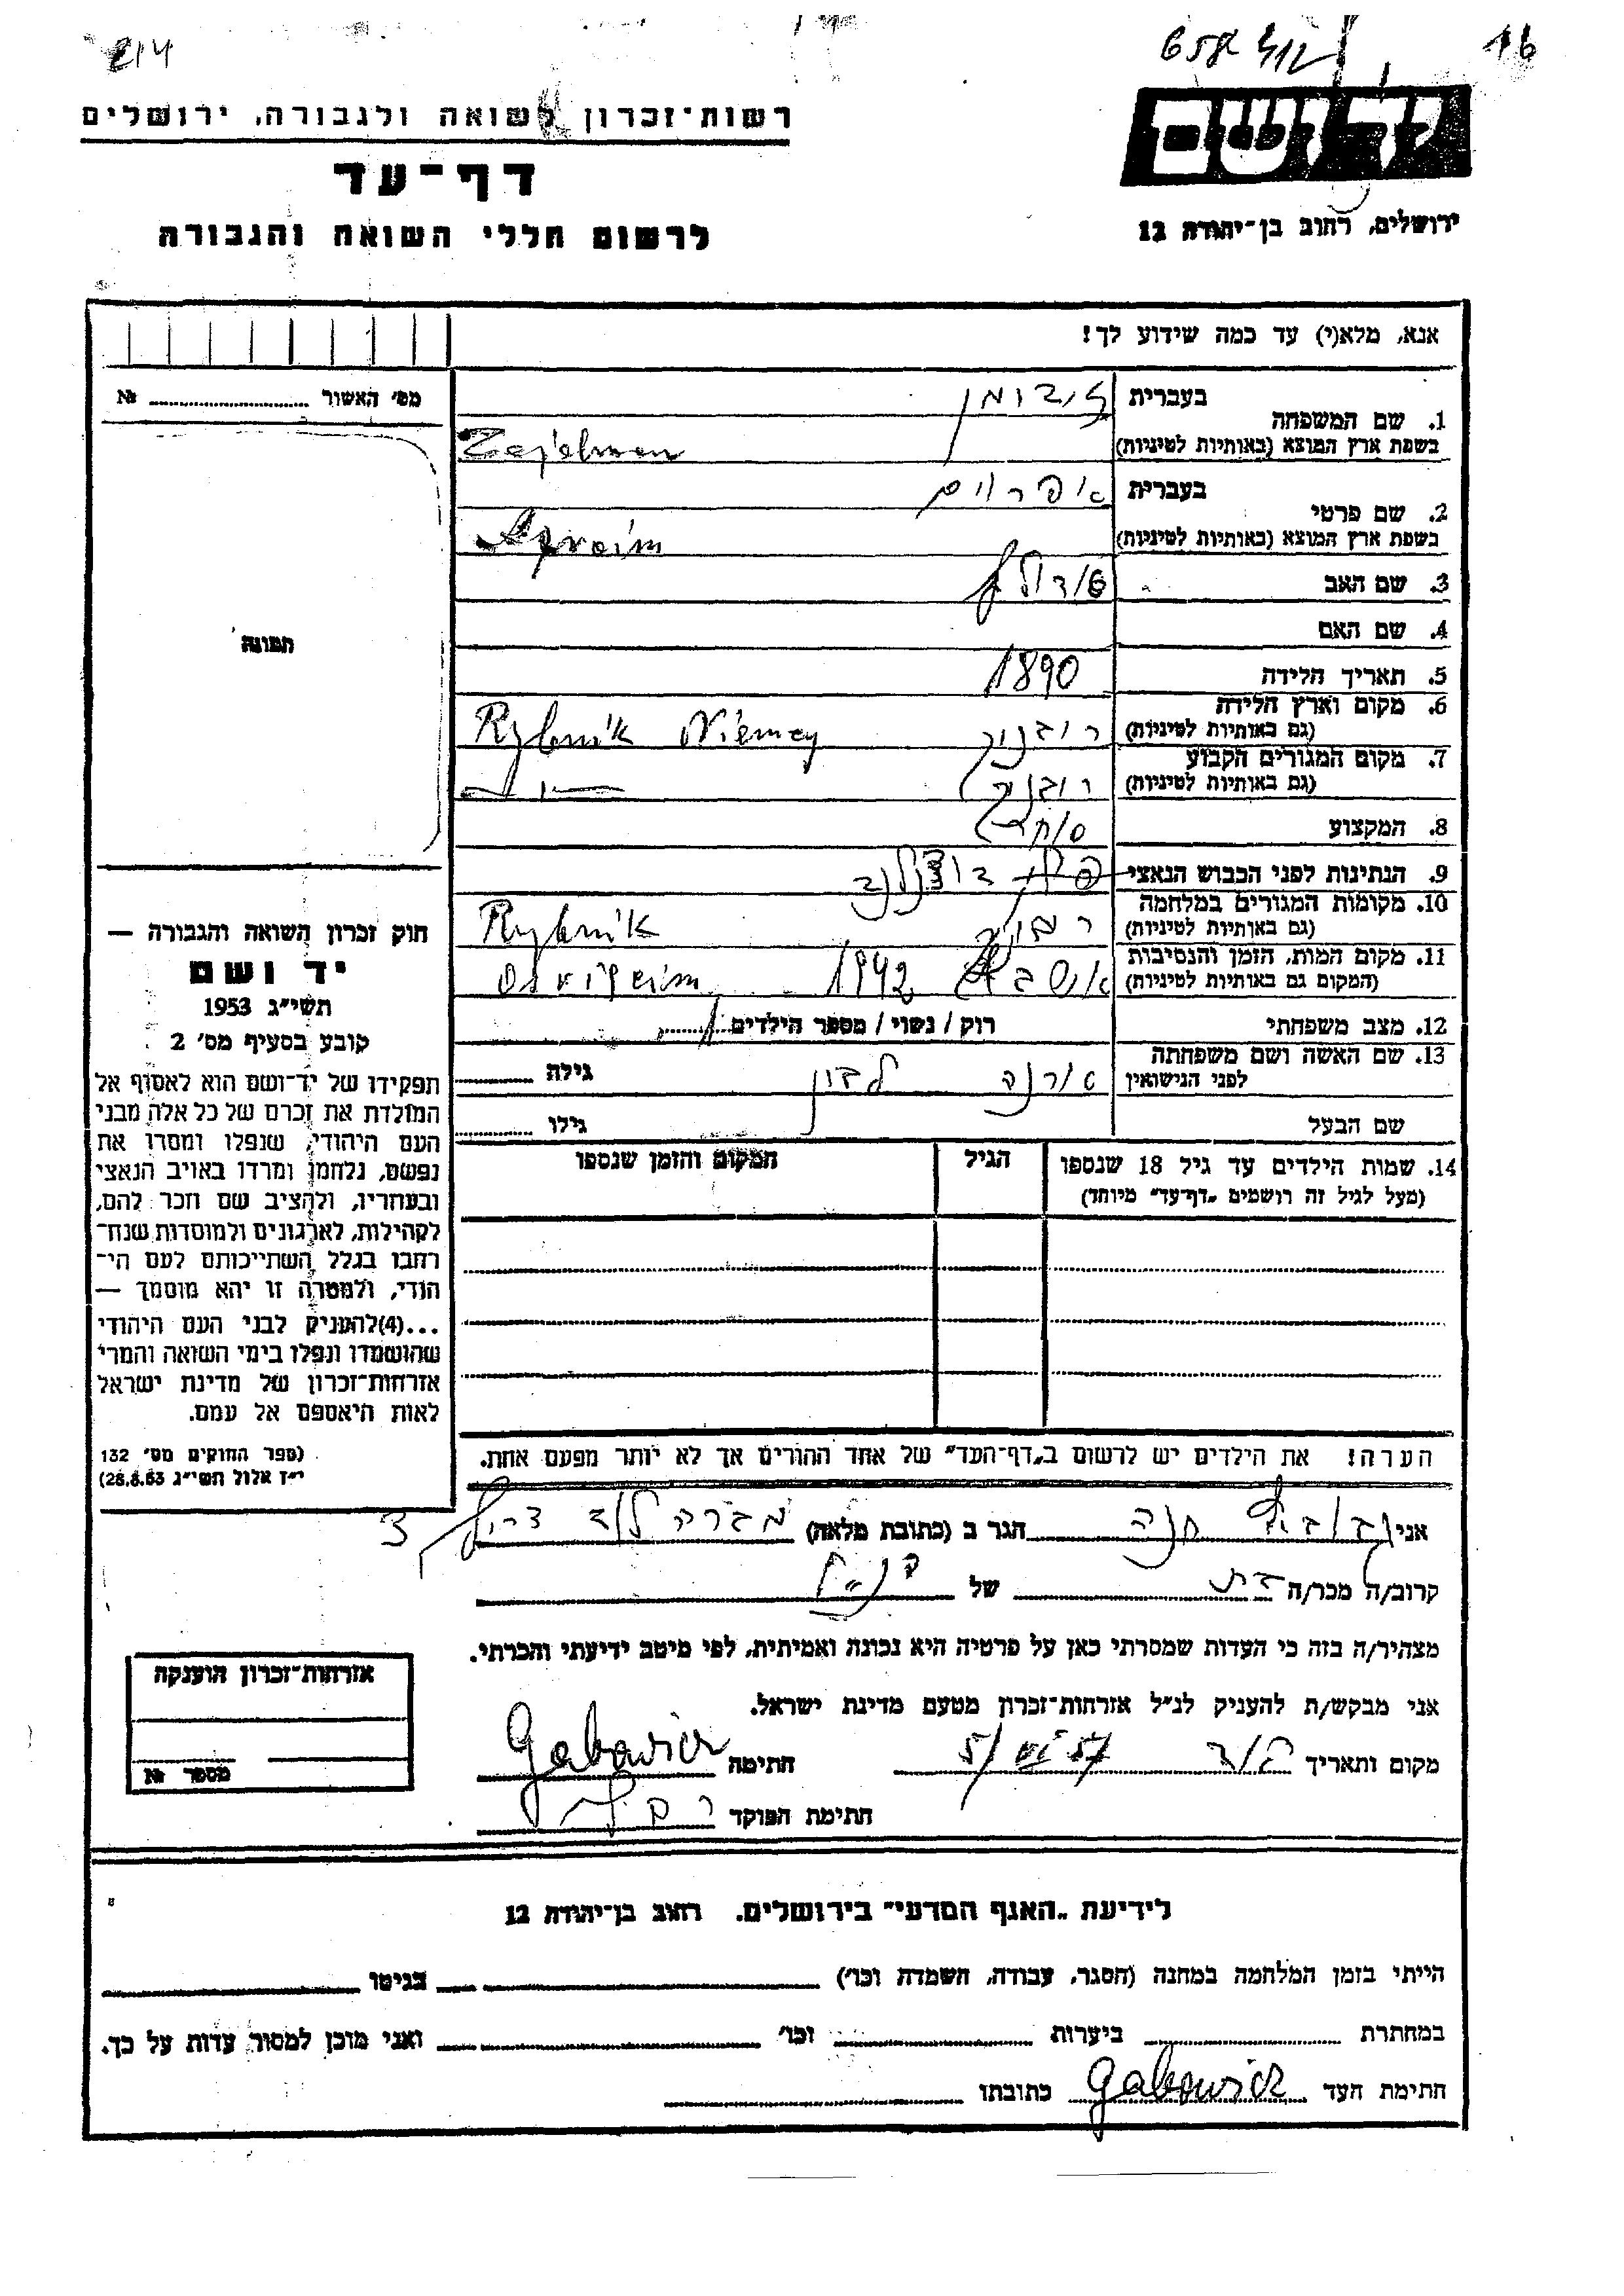 214
16
רשות־זכרון לשואה ולגבורה, ירושלים
יד ושם
דף־עד
ירושלים, רחוב בן־יהודה 12
לרשום חללי השואה והגבורה
אנא, מלא(י) עד כמה שידוע לך!
מס׳ האשור № 
1. שם המשפחה
בעברית
בשפת ארץ המוצא (באותיות לטיניות)
2. שם פרטי
בעברית
בשפת ארץ המוצא (באותיות לטיניות)
3. שם האב
4. שם האם
5. תאריך הלידה 1890
6. מקום וארץ הלידה
(גם באותיות לטיניות) Rybnik Niemcy
7. מקום המגורים הקבוע
(גם באותיות לטיניות)
8. המקצוע סוחר
9. הנתינות לפני הכבוש הנאצי
10. מקומות המגורים במלחמה
(גם באותיות לטיניות) Rybnik
11. מקום המות, הזמן והנסיבות
(המקום גם באותיות לטיניות) 1942
12. מצב משפחתי רוק / נשוי / מספר הילדים 1
13. שם האשה ושם משפחתה
לפני הנישואין
גילה
שם הבעל
גילו
14. שמות הילדים עד גיל 18 שנספו
(מעל לגיל זה רושמים „דף־עד” מיוחד)
הגיל
המקום והזמן שנספו
הערה! את הילדים יש לרשום ב„דף־העד” של אחד ההורים אך לא יותר מפעם אחת.
תמונה
חוק זכרון השואה והגבורה —
יד ושם
תשי״ג 1953
קובע בסעיף מס׳ 2
תפקידו של יד־ושם הוא לאסוף אל
המולדת את זכרם של כל אלה מבני
העם היהודי, שנפלו ומסרו את
נפשם, נלחמו ומרדו באויב הנאצי
ובעוזריו, ולהציב שם וזכר להם,
לקהילות, לארגונים ולמוסדות שנח־
רבו בגלל השתייכותם לעם הי־
הודי, ולמטרה זו יהא מוסמך —
...(4)להעניק לבני העם היהודי
שהושמדו ונפלו בימי השואה והמרי
אזרחות־זכרון של מדינת ישראל
לאות היאספם אל עמם.
(ספר החוקים מס׳ 132
י״ז אלול תשי״ג 28.8.53)
אני חנה הגר ב (כתובת מלאה)
קרוב/ה מכר/ה בת של הנ״ל
מצהיר/ה בזה כי העדות שמסרתי כאן על פרטיה היא נכונה ואמיתית, לפי מיטב ידיעתי והכרתי.
אני מבקש/ת להעניק לנ״ל אזרחות־זכרון מטעם מדינת ישראל.
מקום ותאריך לוד חתימה Gabowicz
חתימת הפוקד
אזרחות־זכרון הוענקה
מספר №
לידיעת „האגף המדעי” בירושלים. רחוב בן־יהודה 12
הייתי בזמן המלחמה במחנה (הסגר, עבודה, השמדה וכו׳) בגיטו
במחתרת ביערות וכו׳ ואני מוכן למסור עדות על כך.
חתימת העד Gabowicz כתובתו